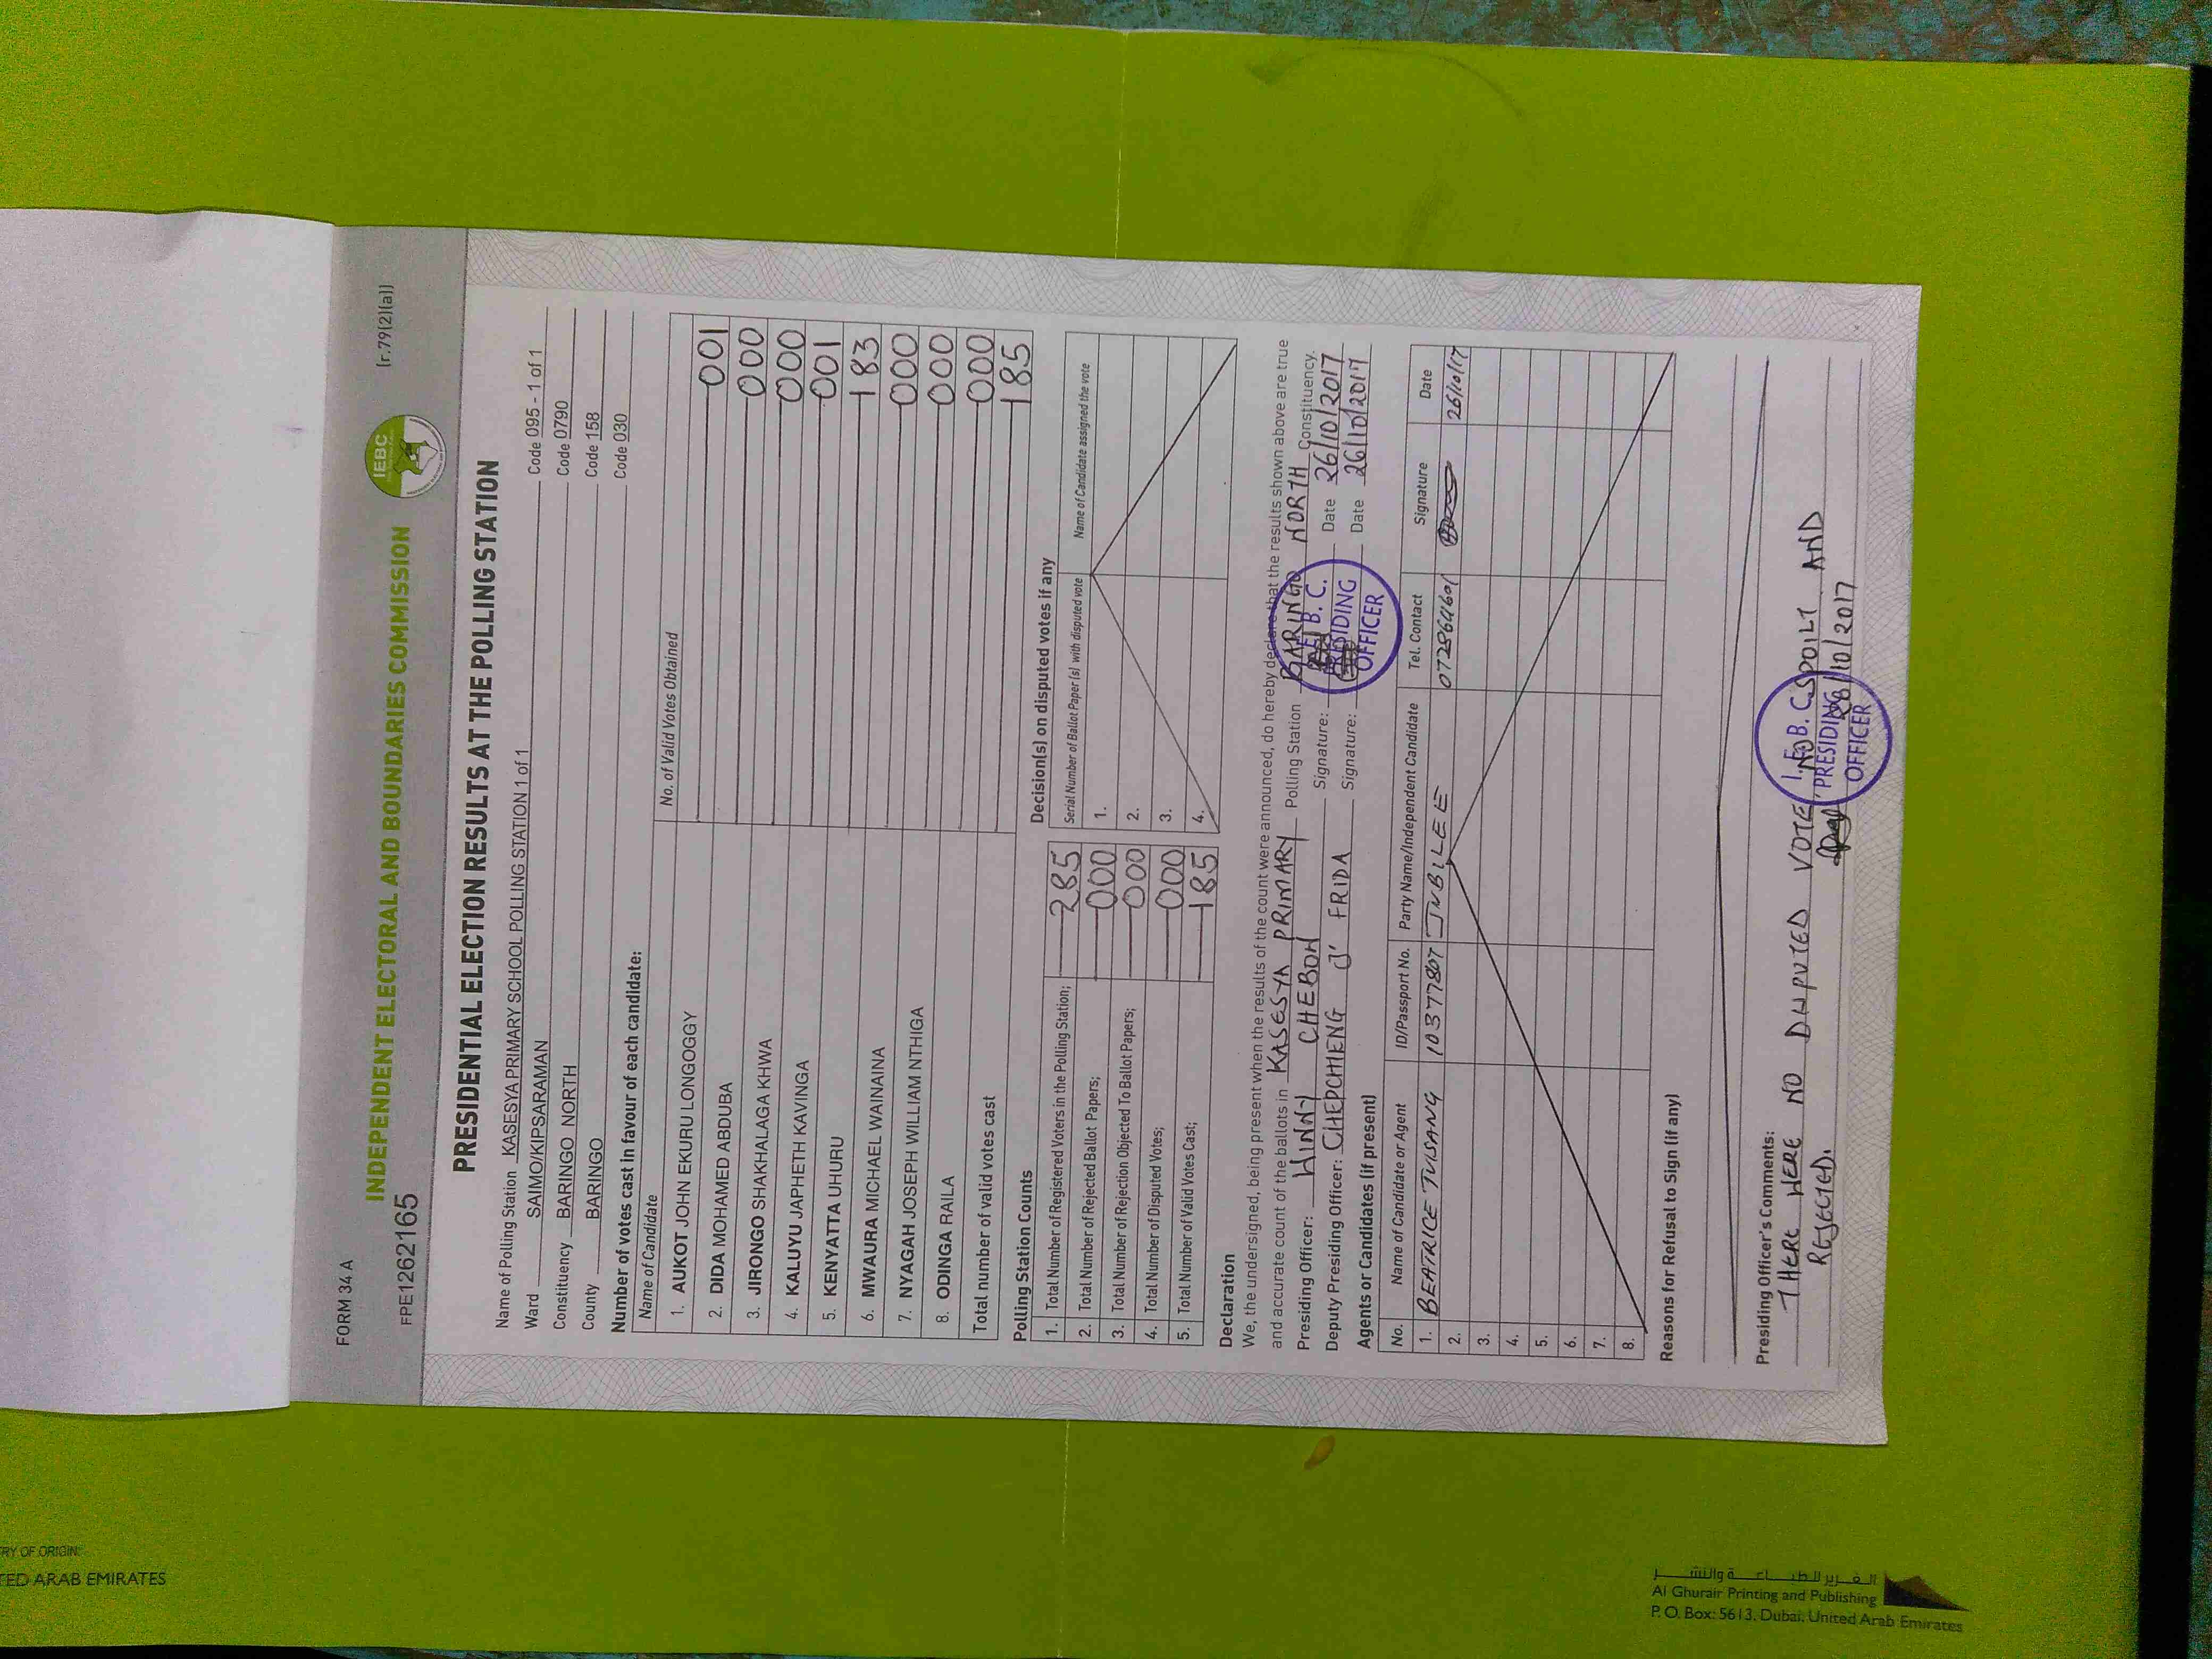 FORM 34 A
(r.79(2)(a))
INDEPENDENT ELECTORAL AND BOUNDARIES COMMISSION
IEBC
FPE1262165
PRESIDENTIAL ELECTION RESULTS AT THE POLLING STATION
Name of Polling Station KASESYA PRIMARY SCHOOL POLLING STATION 1 of 1 Code 095 - 1 of 1
Ward SAIMO/KIPSARAMAN Code 0790
Constituency BARINGO NORTH Code 158
County BARINGO Code 030
Number of votes cast in favour of each candidate:
Name of Candidate No. of Valid Votes Obtained
1. AUKOT JOHN EKURU LONGOGGY 001
2. DIDA MOHAMED ABDUBA 000
3. JIRONGO SHAKHALAGA KHWA 000
4. KALUYU JAPHETH KAVINGA 001
5. KENYATTA UHURU 183
6. MWAURA MICHAEL WAINAINA 000
7. NYAGAH JOSEPH WILLIAM NTHIGA 000
8. ODINGA RAILA 000
Total number of valid votes cast 185
Polling Station Counts
1. Total Number of Registered Voters in the Polling Station; 285
2. Total Number of Rejected Ballot Papers; 000
3. Total Number of Rejection Objected To Ballot Papers; 000
4. Total Number of Disputed Votes; 000
5. Total Number of Valid Votes Cast; 185
Decision(s) on disputed votes if any
Serial Number of Ballot Paper (s) with disputed vote Name of Candidate assigned the vote
1.
2.
3.
4.
Declaration
We, the undersigned, being present when the results of the count were announced, do hereby declare that the results shown above are true
and accurate count of the ballots in KASESYA PRIMARY Polling Station BARINGO NORTH Constituency.
Presiding Officer: WINNY CHEBON Signature: Date 26/10/2017
Deputy Presiding Officer: CHEPCHIENG J' FRIDA Signature: Date 26/10/2017
I. E. B. C.
PRESIDING
OFFICER
Agents or Candidates (if present)
No. Name of Candidate or Agent ID/Passport No. Party Name/Independent Candidate Tel. Contact Signature Date
1. BEATRICE TUISANG 10377807 JUBILEE 0728641601 26/10/17
2.
3.
4.
5.
6.
7.
8.
Reasons for Refusal to Sign (if any)
Presiding Officer's Comments:
THERE WERE NO DISPUTED VOTE, NO SPOILT AND
REJECTED. 26/10/2017
I. E. B. C.
PRESIDING
OFFICER
RY OF ORIGIN:
TED ARAB EMIRATES
الغرير للطباعة والنشر
Al Ghurair Printing and Publishing
P. O. Box: 5613, Dubai, United Arab Emirates